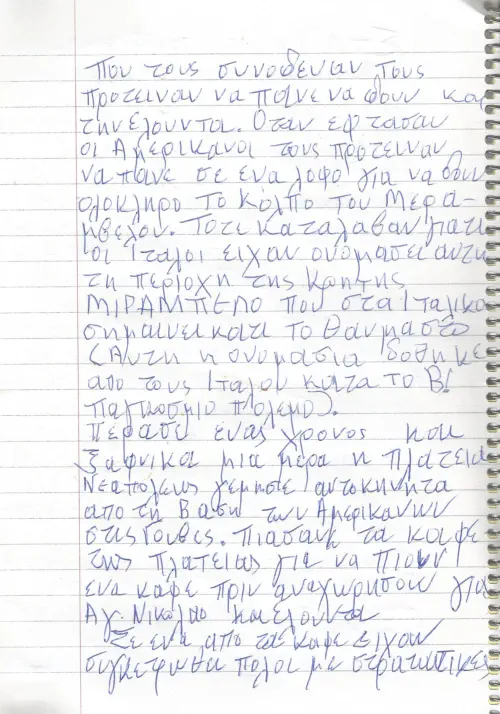 Που τους συνοδευαν τους
προτειναν να πανε να δουν και
την Ελουντα. Οταν εφτασαν
οι Αμερικανοι τους προτειναν
να πανε σε ενα λοφο για να δουν
ολοκληρο το Κολπο του Μερα-
μβελου. Τοτε καταλαβαν γιατι
οι Ιταλοι ειχαν ονομασει αυτη
τη περιοχη της Κρητης
ΜΙΡΑΜΠΕΛΟ που στα Ιταλικα
σημαινει κατι το θαυμαστο
(Αυτη η ονομασια δοθηκε
απο τους Ιταλου κατα το Β!
Παγκοσμιο πολεμο).
Περασε ενας χρονος και
ξαφνικα μια μερα η πλατεια
Νεαπολεως γεμησε αυτοκινητα
απο τη Βαση των Αμερικανων
στις Γουβες. Πιασανε τα καφε
της πλατειας για να πιουν
ενα καφε πριν αναχωρησουν για
Αγ. Νικολαο και Ελουντα
Σε ενα απο τα καφε ειχαν
πολοι με στρατιωτικες